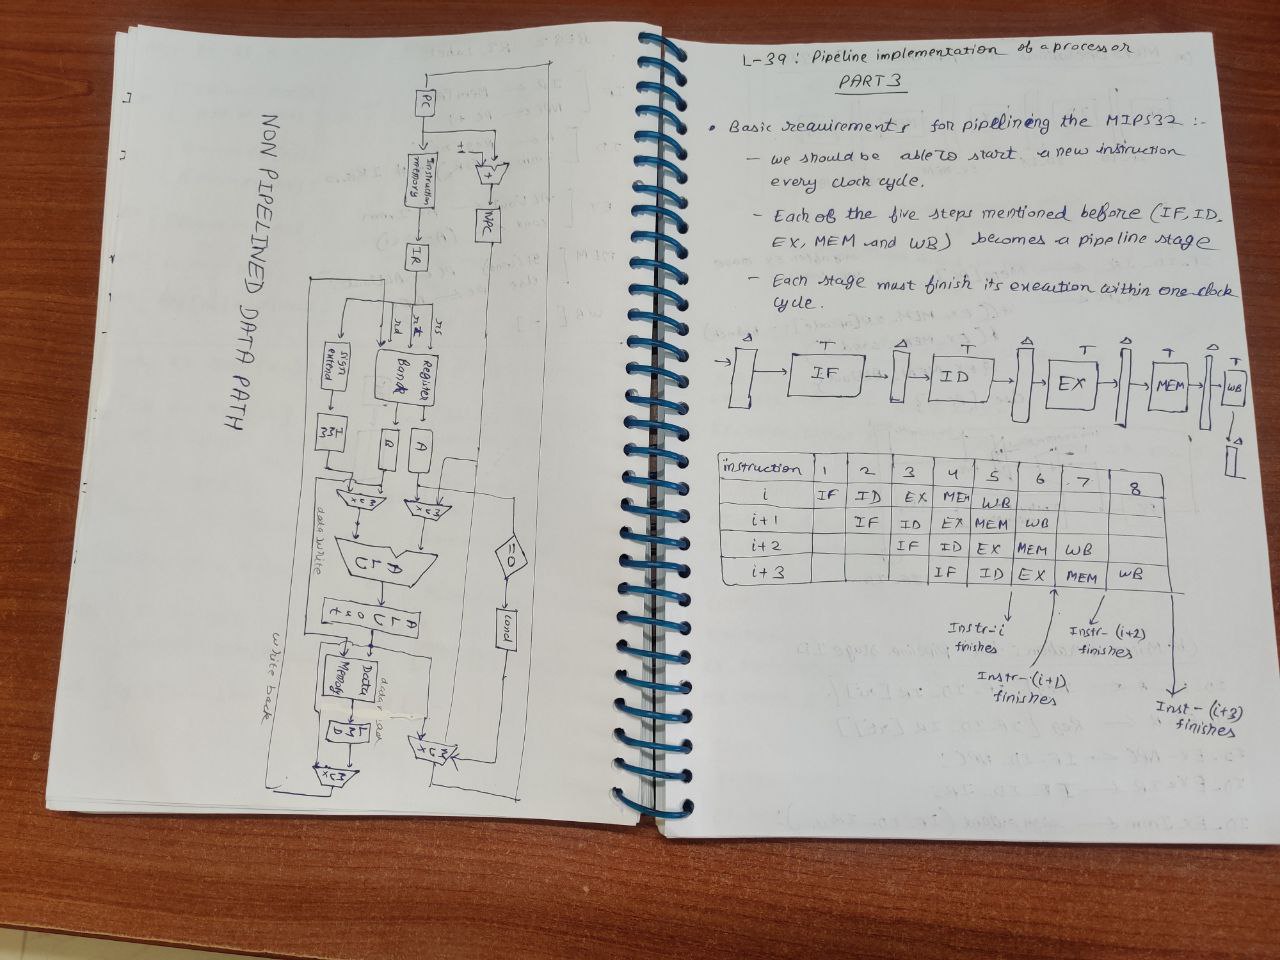 NON PIPELINED DATA PATH
PC
+1
+
NPC
Instruction
memory
IR
rs
rt
rd
Register
Bank
sign
extend
IMM
A
B
MUX
MUX
=0
cond
ALU
ALU
out
data write
Data
Memory
LMD
MUX
MUX
write back
L-39: Pipeline implementation of a processor
PART 3
• Basic requirements for pipelining the MIPS32 :-
- we should be able to start a new instruction
every clock cycle.
- Each of the five steps mentioned before (IF, ID,
EX, MEM and WB) becomes a pipeline stage
- Each stage must finish its execution within one clock
cycle.
Δ T Δ T Δ T Δ T Δ T Δ
IF ID EX MEM WB
instruction 1 2 3 4 5 6 7 8
i IF ID EX MEM WB
i+1 IF ID EX MEM WB
i+2 IF ID EX MEM WB
i+3 IF ID EX MEM WB
Instr-i
finishes
Instr-(i+1)
finishes
Instr-(i+2)
finishes
Inst-(i+3)
finishes